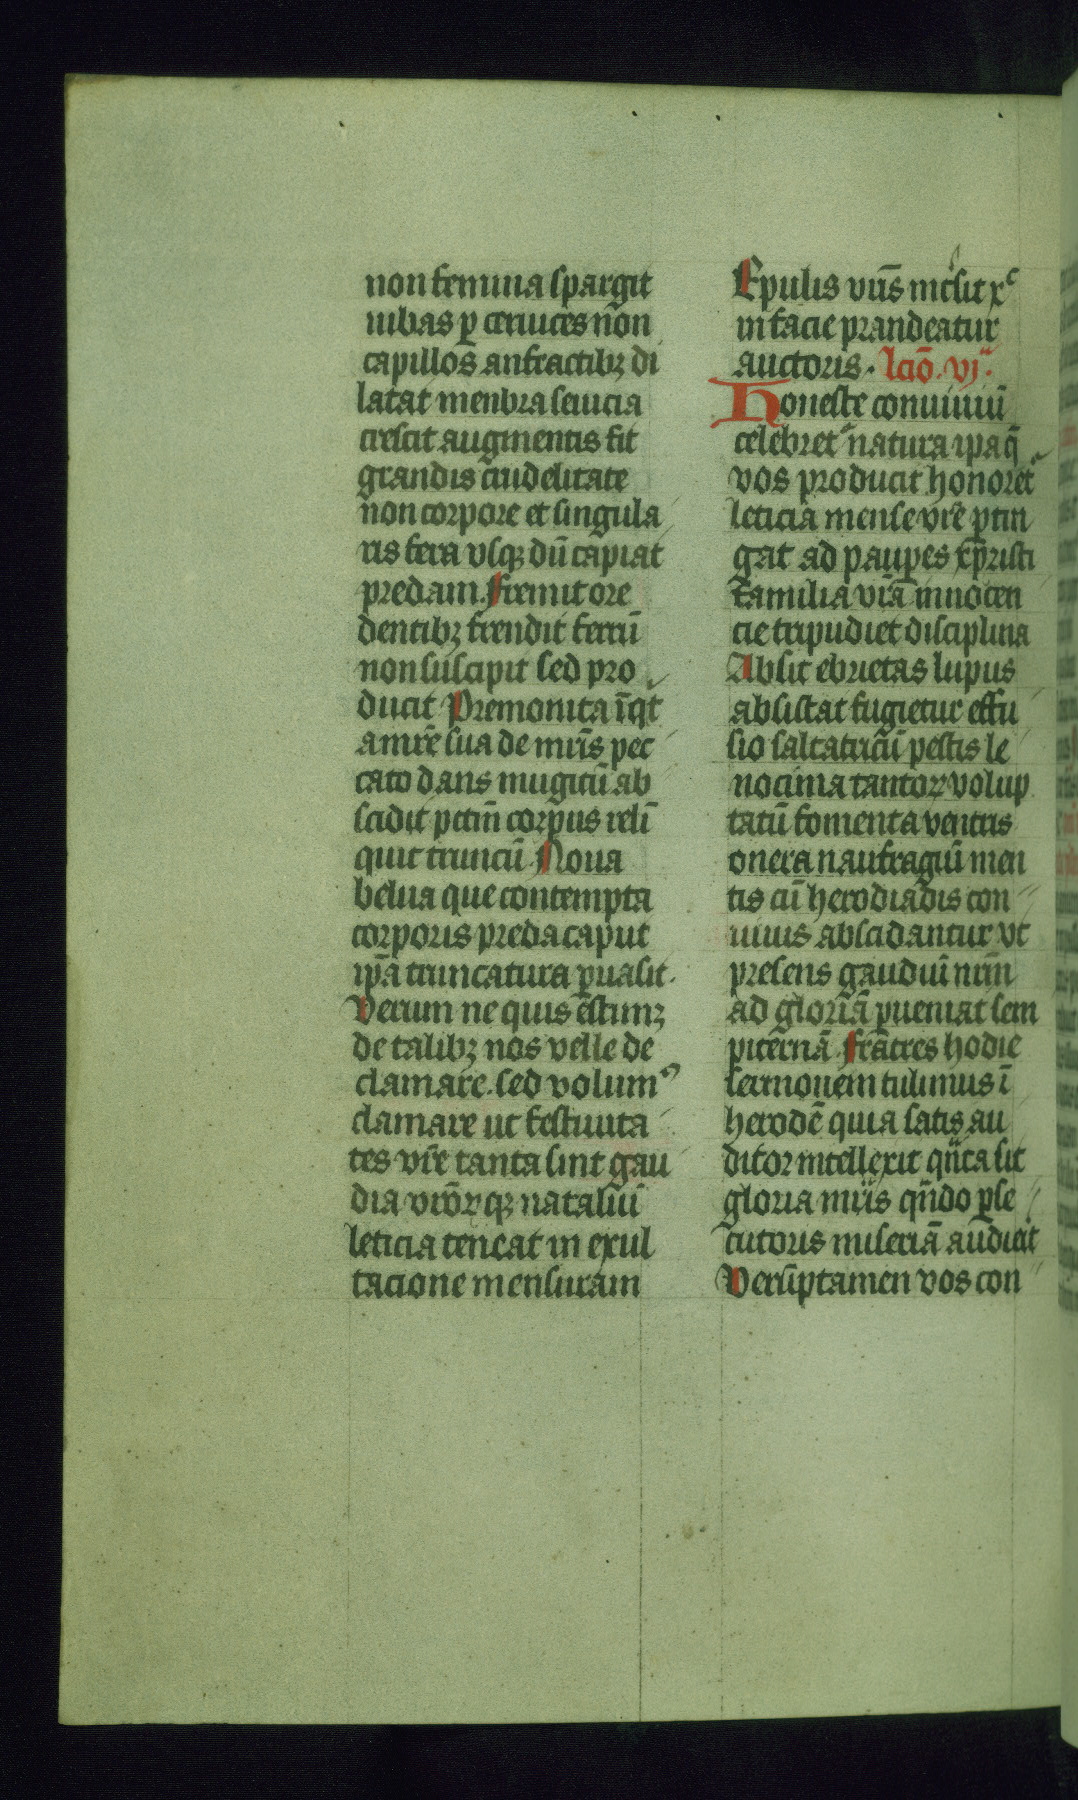 non femina spargit
iubas ꝑ ceruices non
capillos anfractibꝫ di
latat menbra seuicia
crescit augmentis fit
grandis crudelitate
non corpore et singula
ris fera vsqꝫ dū capiat
predam. Fremit ore
dentibꝫ frendit ferrū
non suscipit sed pro
ducit Premonita īqt
a mr̄e sua de mr̄is pec
cato dans mugitū ab
scidit petiīt corpus reli̅
quit truncū Noua
belua que contempta
corporis preda caput
ip̄a truncatura ꝑuasit.
Verum ne quis ēstimꝫ
de talibꝫ nos velle de
clamare. sed volumꝰ
clamare ut festiuita
tes vr̄e tanta sint gau
dia vr̄orꝫ qꝫ nataliū
leticia teneat in exul
tacione mensuram
Epulis vr̄is īt̄sit xᶜ
in facie prandeatur
auctoris. lc̄io. vj.
Honestꝫ conuiuiū
celebret᷑ natura ip̄a q̄
vos producit honoret᷑
leticia mense vr̄e ꝑtin
gat ad pauꝑes xp̄risti
familia vr̄a innocen
cie tripudiet disciplina
Absit ebrietas lupus
absistat fugietur effu
sio saltatricū pestis le
nocinia tantoꝝ volup
tatū fomenta ventris
onera naufragiū men
tis cū herodiadis con
uiuiis abscidantur vt
presens gaudiū nr̄m
ad gloriā ꝑueniat sem
pit̄ernā Fratres hodie
sermonem tulimus ī
herodē quia satis au
ditor intellexit q̄nta sit
gloria mr̄is q̄ndo ꝑse
cutoris miseriā audierit
Verūptamen vos con